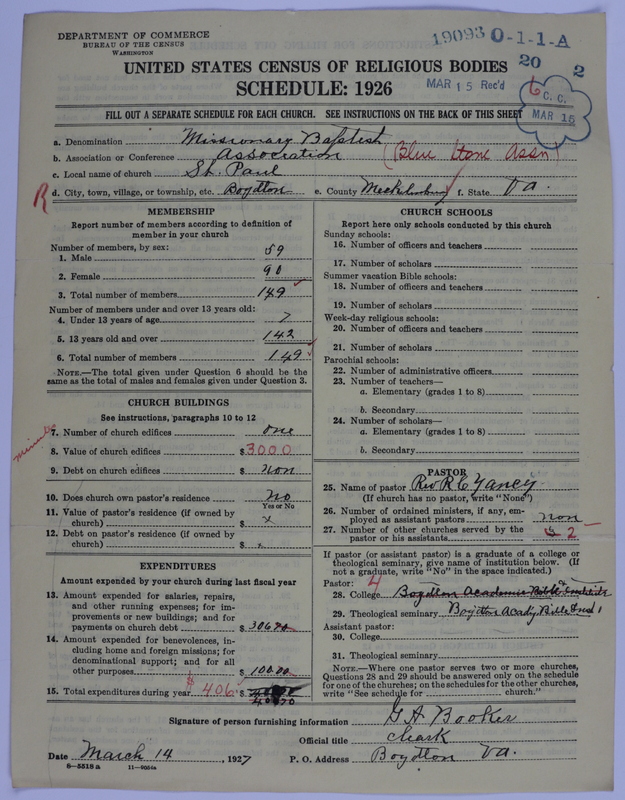 DEPARTMENT OF COMMERCE
BUREAU OF THE CENSUS
WASHINGTON
19093 O-1-1-A
20 2
UNITED STATES CENSUS OF RELIGIOUS BODIES
SCHEDULE: 1926
MAR 15 Rec'd
6 C. C.
MAR 15
FILL OUT A SEPARATE SCHEDULE FOR EACH CHURCH. SEE INSTRUCTIONS ON THE BACK OF THIS SHEET
a. Denomination Missionary Baptist
b. Association or Conference Association (Blue Stone Assn)
c. Local name of church St. Paul
R d. City, town, village, or township, etc. Boydton e. County Mecklenburg f. State Va.
MEMBERSHIP
Report number of members according to definition of member in your church
Number of members, by sex:
1. Male 59
2. Female 90
3. Total number of members 149
Number of members under and over 13 years old:
4. Under 13 years of age 7
5. 13 years old and over 142
6. Total number of members 149
NOTE.—The total given under Question 6 should be the
same as the total of males and females given under Question 3.
CHURCH BUILDINGS
See instructions, paragraphs 10 to 12
7. Number of church edifices one
8. Value of church edifices $ 3000
9. Debt on church edifices $ non
10. Does church own pastor's residence No
Yes or No
11. Value of pastor's residence (if owned by
church) $ x
12. Debt on pastor's residence (if owned by
church) $
EXPENDITURES
Amount expended by your church during last fiscal year
13. Amount expended for salaries, repairs,
and other running expenses; for im-
provements or new buildings; and for
payments on church debt $ 30670
14. Amount expended for benevolences, in-
cluding home and foreign missions; for
denominational support; and for all
other purposes $ 100.00
15. Total expenditures during year $ 406 $
40670
CHURCH SCHOOLS
Report here only schools conducted by this church
Sunday schools:
16. Number of officers and teachers
17. Number of scholars
Summer vacation Bible schools:
18. Number of officers and teachers
19. Number of scholars
Week-day religious schools:
20. Number of officers and teachers
21. Number of scholars
Parochial schools:
22. Number of administrative officers
23. Number of teachers—
a. Elementary (grades 1 to 8)
b. Secondary
24. Number of scholars—
a. Elementary (grades 1 to 8)
b. Secondary
PASTOR
25. Name of pastor Rev R C Yancey
(If church has no pastor, write "None")
26. Number of ordained ministers, if any, em-
ployed as assistant pastors non
27. Number of other churches served by the
pastor or his assistants 2
If pastor (or assistant pastor) is a graduate of a college or
theological seminary, give name of institution below. (If
not a graduate, write "No" in the space indicated.)
Pastor: 4
28. College Boydton Academic Bible &
29. Theological seminary Boydton Acady Bible
Assistant pastor:
30. College
31. Theological seminary
NOTE.—Where one pastor serves two or more churches,
Questions 28 and 29 should be answered only on the schedule
for one of the churches; on the schedules for the other churches,
write "See schedule for church."
Signature of person furnishing information G A Booker
Official title cleark
Date March 14, 1927 P. O. Address Boydton Va.
8—5518 a